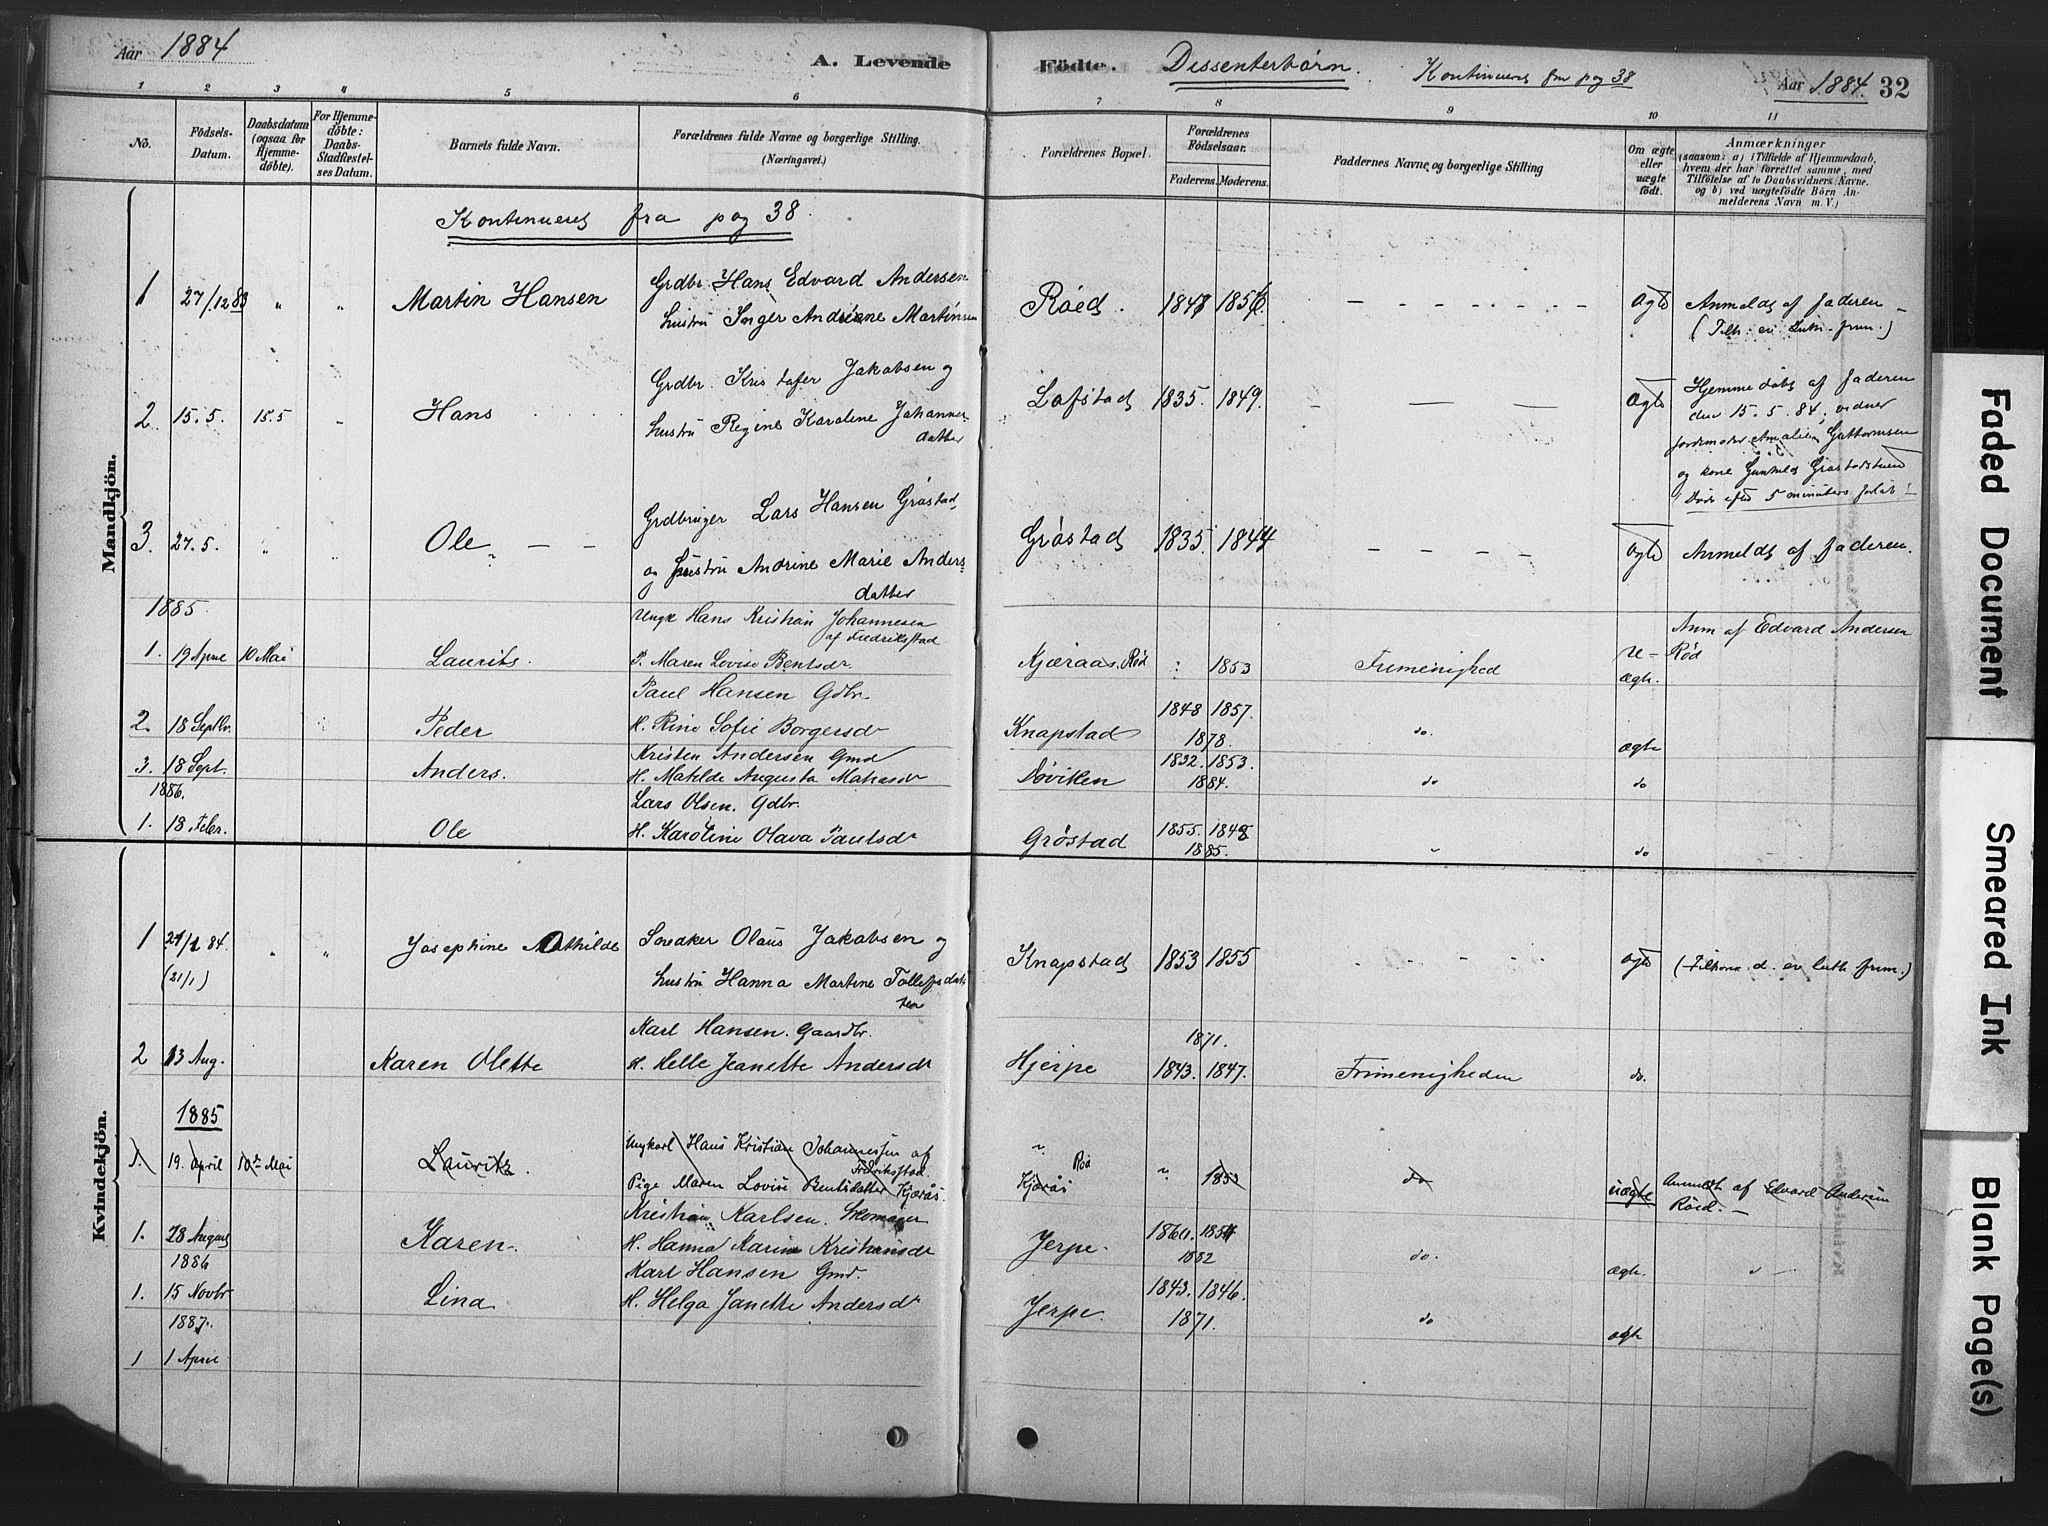 Aar 1884
A. Levende
Födte.
Dissenterbörn.
Kontinueres fra pag 38
Aar 1884. 32
1 2 3 4 5 6 7 8 9 10 11
No.
Födsels-
Datum.
Daabsdatum
(ogsaa for
Hjemme-
döbte).
For Hjemme-
döbte:
Daabs-
Stadfæstel-
ses Datum.
Barnets fulde Navn.
Forældrenes fulde Navne og borgerlige Stilling.
(Næringsvei.)
Forældrenes Bopæl.
Forældrenes
Födselsaar.
Faderens. Moderens.
Faddernes Navne og borgerlige Stilling
Om ægte
eller
uægte
födt.
Anmærkninger
(saasom: a) i Tilfælde af Hjemmedaab,
hvem der har forrettet samme, med
Tilföielse af to Daabsvidners Navne.
og b) ved uægtefödte Börn An-
melderens Navn m. V.)
Mandkjön.
Kontinueres fra pag 38.
1 27/12 83 " " Martin Hansen
Grdbr. Hans Edvard Andersen
hustru Inger Andriane Martinsen
Röed. 1847 1856 - - - - - - - Ægte
Anmeldt af Faderen
(Tilh. ev. Luth. frim.)
2 15.5. 15.5 " Hans
Grdbr. Kristofer Jakobsen og
hustru Regine Karoline Johannes
datter
Lofstad 1835. 1849. - - - Ægte
Hjemmedöbt af Faderen
den 15.5.84, vidner
jordemoder Amalie Guttormsen
og kone Gunhild Gröstadstuen
Döde efter 5 minuters forløb!
3. 27.5. " " Ole
Grdbruger Lars Hansen Gröstad,
og Hustru Andrine Marie Anders
datter
Gröstad 1835. 1844 - - - - Ægte
Anmeldt af Faderen.
1885.
1. 19 April 10 Mai Laurits.
Ungk Hans Kristian Johannesen
af Fredriksstad
P. Maren Lovise Bentsdr.
Kjæraas. Röd " 1853 Frimenighed
u-
ægte.
Anm af Edvard Andersen
Röd
2. 18 Septbr. Peder
Paul Hansen Gdbr.
H. Rine Sofie Borgersdr
Knapstad 1848 1857.
1878.
do. ægte
3. 18 Sept. Anders.
Kristen Andersen Gmd
H. Matilde Augusta Matiasdr
Döviken 1832. 1853.
1884.
do do
1886.
1. 18 Febr. Ole
Lars Olsen. Gdbr.
H. Karoline Olava Paulsdr
Gröstad 1855. 1848
1885.
" do
Kvindekjön.
1 21/1 84. " " Josephine Mathilde
(21/1)
Snedker Olaus Jakobsen og
hustru Hanna Martine Tollefsdat
ter
Knapstad 1853 1855 - - - - - Ægte
(Tilhører d. ev luth frim.)
2 13 Aug. Karen Olette
Karl Hansen. Gaardbr.
H. Helle Jeanette Andersdr
Hjerpe 1871.
1843. 1847.
Frimenigheden do.
1885
1. 19. April 10de Mai Lauritz.
Ungkarl Hans Kristian Johannessen af
Fredriksstad.
Pige Maren Lovise Bentsdatter Kjærås.
"
Röd
Kjærås " 1853 do uægte
Anmeldt af Edvard Andersen
Röed. -
1. 28 August Karen.
Kristian Karlsen. Skomager
H. Hanna Karine Kristiansdr
Jerpe. 1860. 1854
1882
do. ægte.
1886
1. 15 Novbr Lina
Karl Hansen Gmd.
H. Helga Janette Andersdr
Jerpe. 1843. 1846.
1871.
do ægte
1887.
1 1 April
Faded Document
Smeared Ink
Blank Page(s)